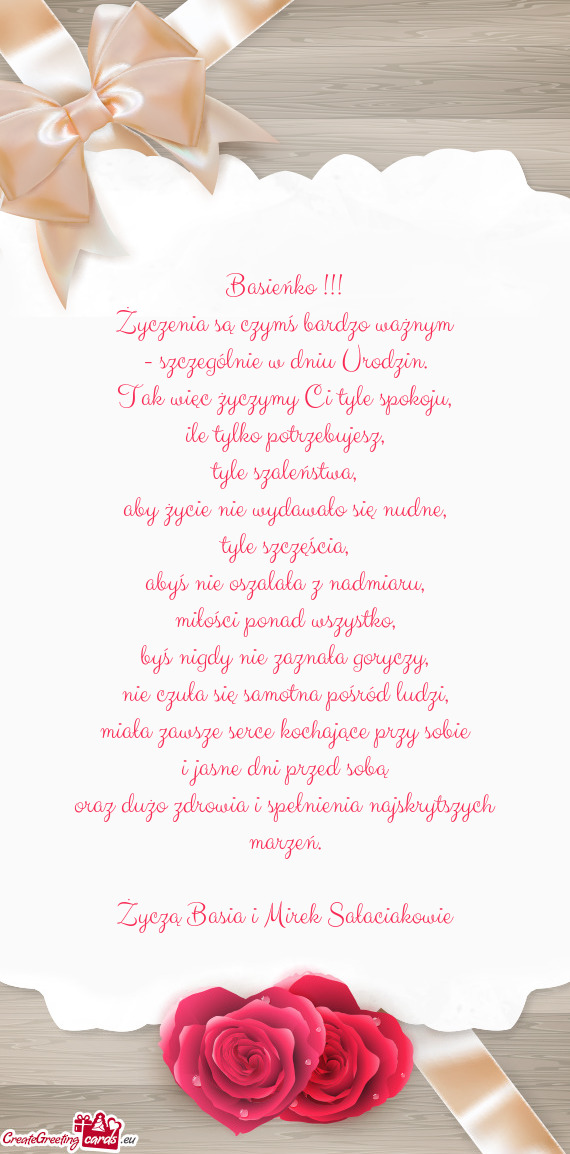 Basieńko !!!
Życzenia są czymś bardzo ważnym
- szczególnie w dniu Urodzin.
Tak więc życzymy Ci tyle spokoju,
ile tylko potrzebujesz,
tyle szaleństwa,
aby życie nie wydawało się nudne,
tyle szczęścia,
abyś nie oszalała z nadmiaru,
miłości ponad wszystko,
byś nigdy nie zaznała goryczy,
nie czuła się samotna pośród ludzi,
miała zawsze serce kochające przy sobie
i jasne dni przed sobą
oraz dużo zdrowia i spełnienia najskrytszych
marzeń.
Życzą Basia i Mirek Sałaciakowie
CreateGreeting cards .eu